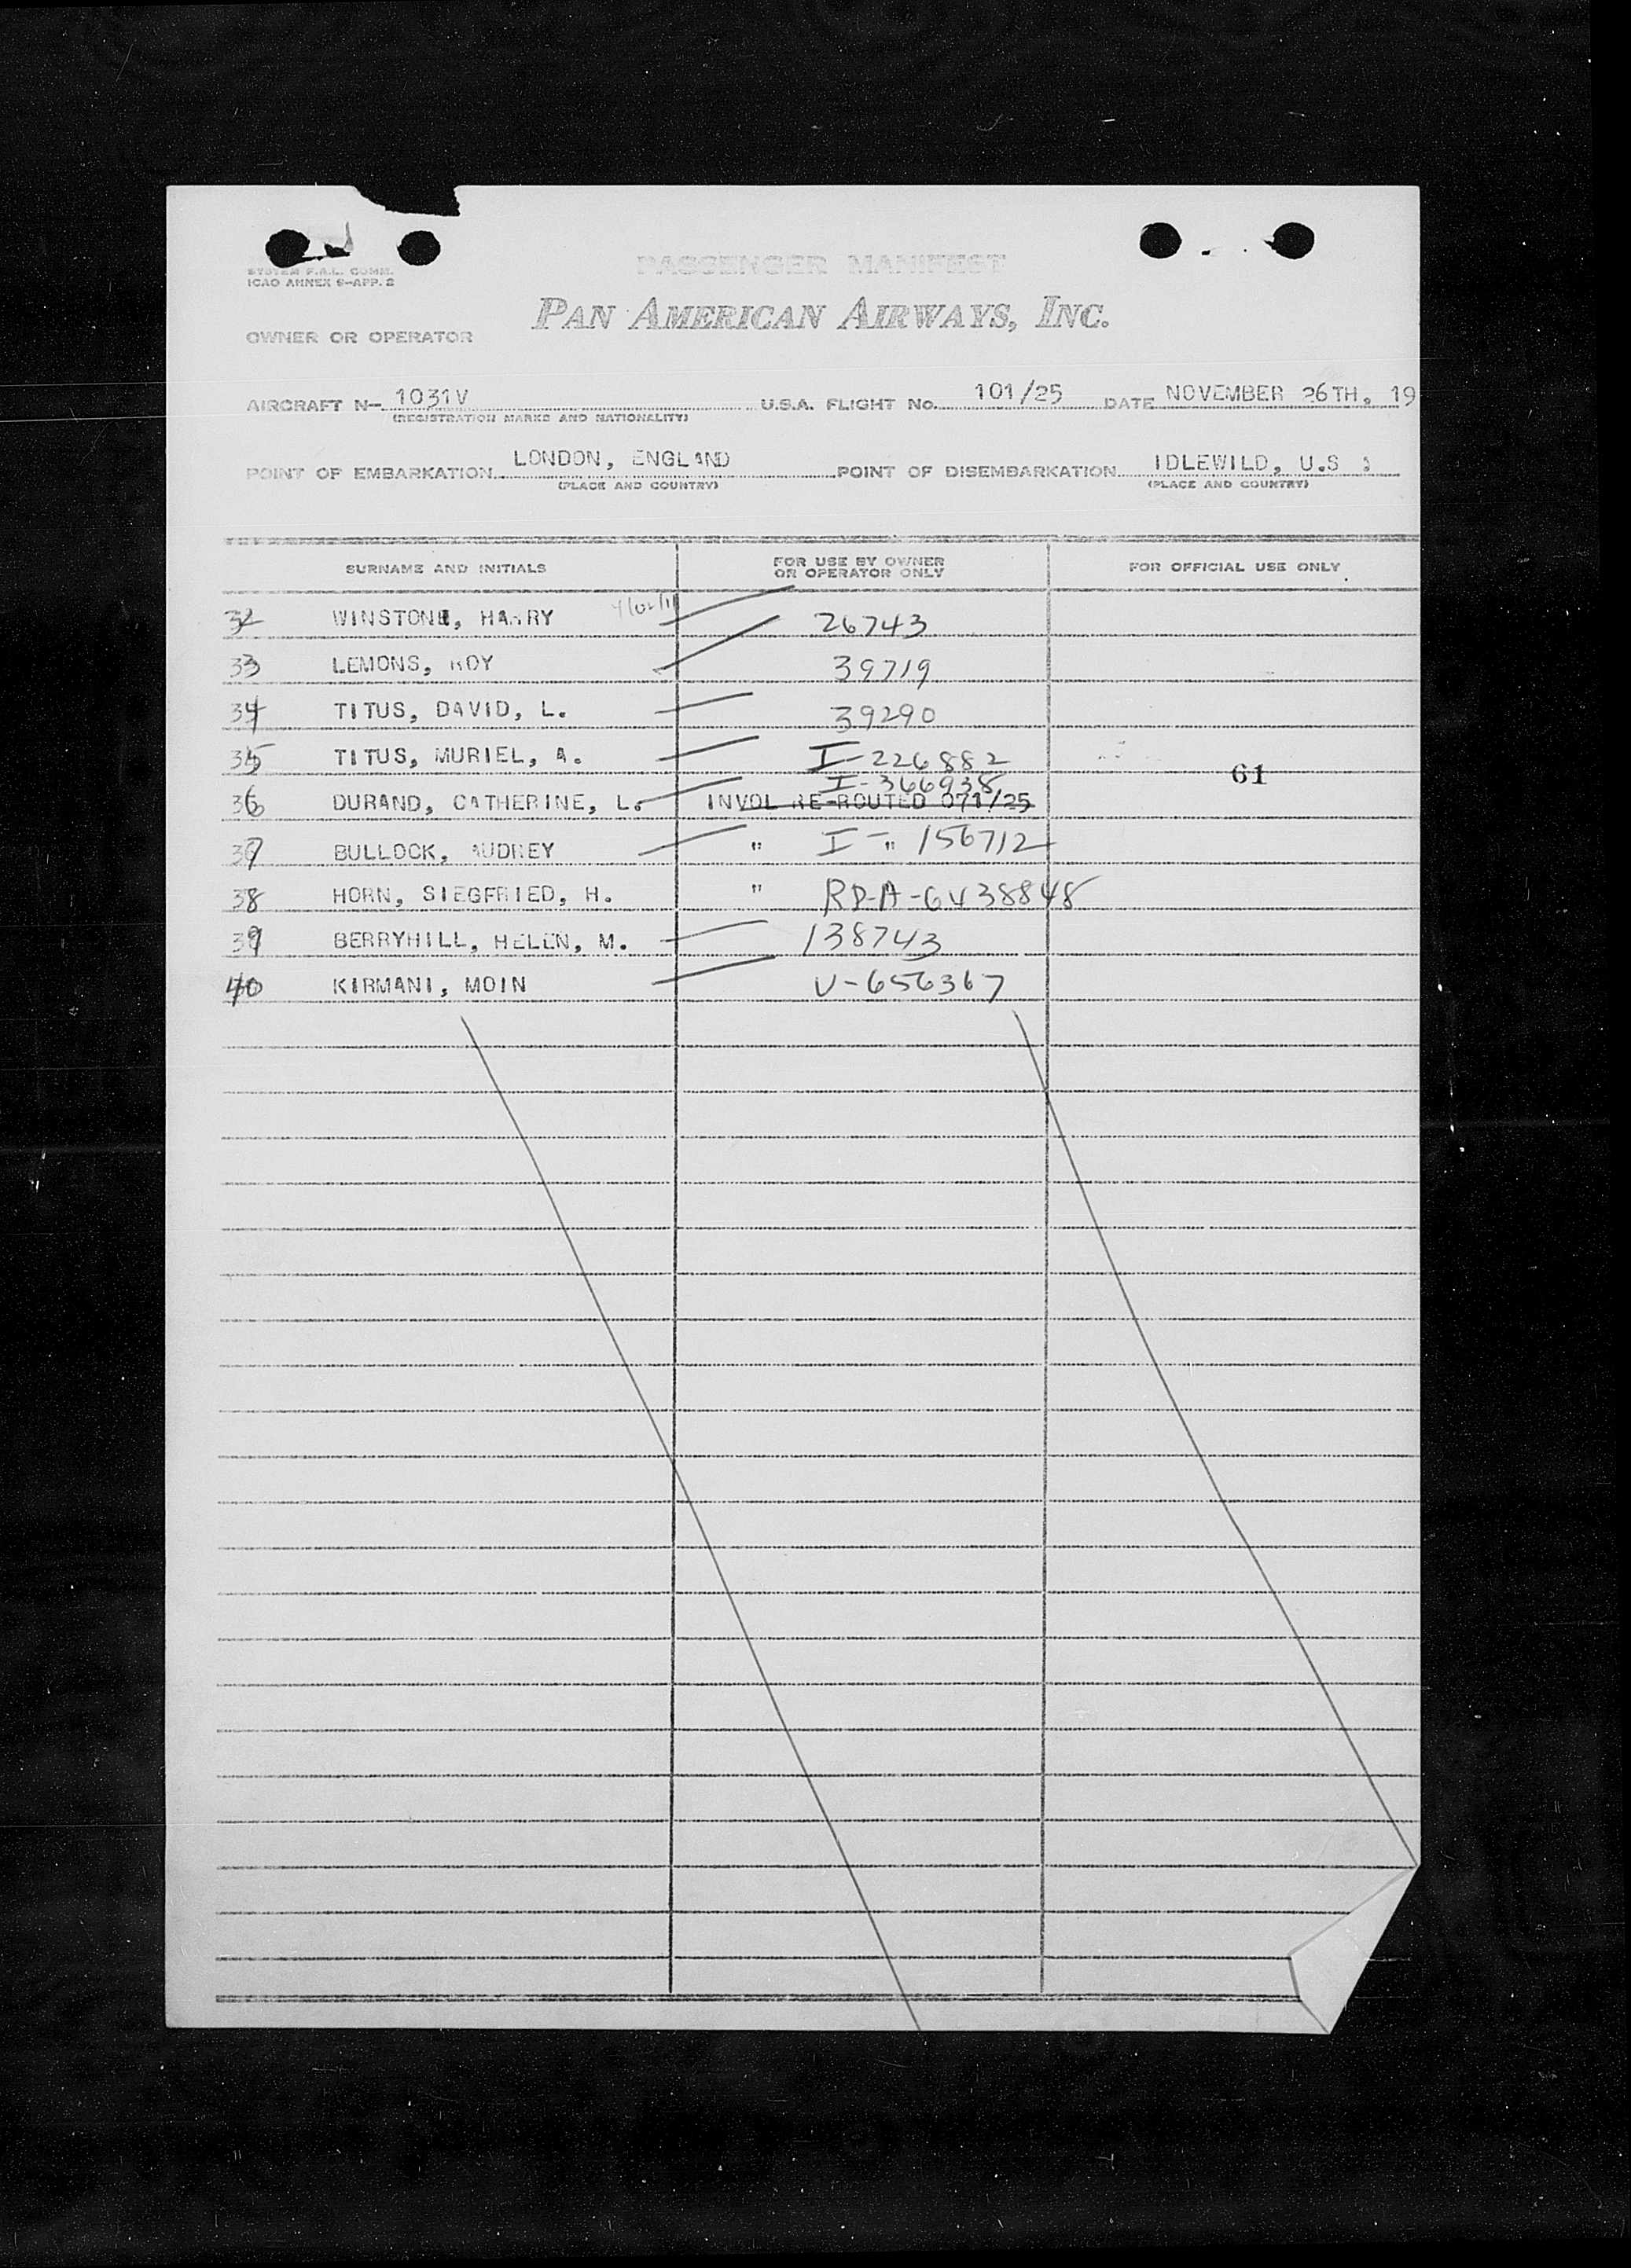 SYSTEM F.A.L. COMM.
ICAO ANNEX 9-APP. 2
PASSENGER MANIFEST
PAN AMERICAN AIRWAYS, INC.
OWNER OR OPERATOR
AIRCRAFT N- 1031V U.S.A. FLIGHT No. 101/25 DATE NOVEMBER 26TH. 19
(REGISTRATION MARKS AND NATIONALITY)
POINT OF EMBARKATION LONDON, ENGLAND POINT OF DISEMBARKATION IDLEWILD, U.S
(PLACE AND COUNTRY) (PLACE AND COUNTRY)
SURNAME AND INITIALS FOR USE BY OWNER OR OPERATOR ONLY FOR OFFICIAL USE ONLY
32 WINSTONE, HARRY 26743
33 LEMONS, ROY 39719
34 TITUS, DAVID, L. 39290
35 TITUS, MURIEL, A. I-226882
61
I-366938
36 DURAND, CATHERINE, L. INVOL RE-ROUTED 071/25
37 BULLOCK, AUDREY " I-" 156712
38 HORN, SIEGFRIED, H. " RP-A-6438848
39 BERRYHILL, HELEN, M. 138743
40 KIRMANI, MOIN V-656367